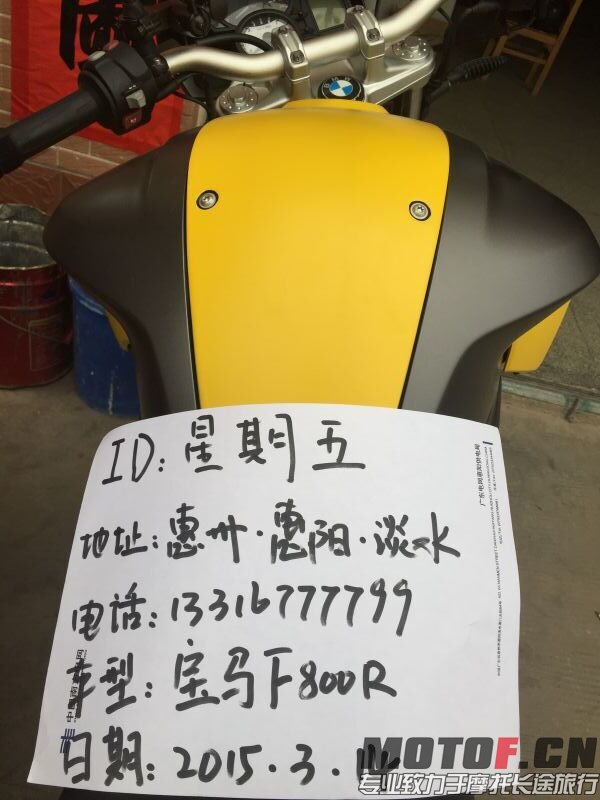 BMW
ID: 星期五
地址: 惠州·惠阳·淡水
电话: 13316777799
车型: 宝马F800R
日期: 2015.3.
广东电网惠阳供电局
MOTOF.CN
专业致力于摩托长途旅行